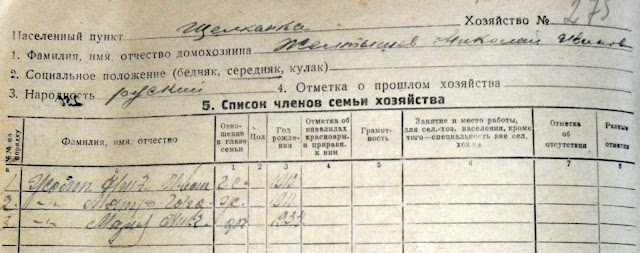 Населенный пункт Щелкановка Хозяйство № 275
1. Фамилия, имя, отчество домохозяина Желтышев Николай Иванов
2. Социальное положение (бедняк, середняк, кулак)
3. Народность руский 4. Отметка о прошлом хозяйства
5. Список членов семьи хозяйства
№№ по порядку Фамилия, имя, отчество Отношение к главе семьи Пол Год рождения Отметка об инвалидах красноарм. и приравн. к ним Грамотность Занятие и место работы, для сел.-хоз. населения, кроме того—специальность вне сел. хоз-ва Отметка об отсутствии Разные отметки
1 2 3 4 5 6 7 8
1 г.с. 1910
2. 1911
3. Мария Ник. 1932